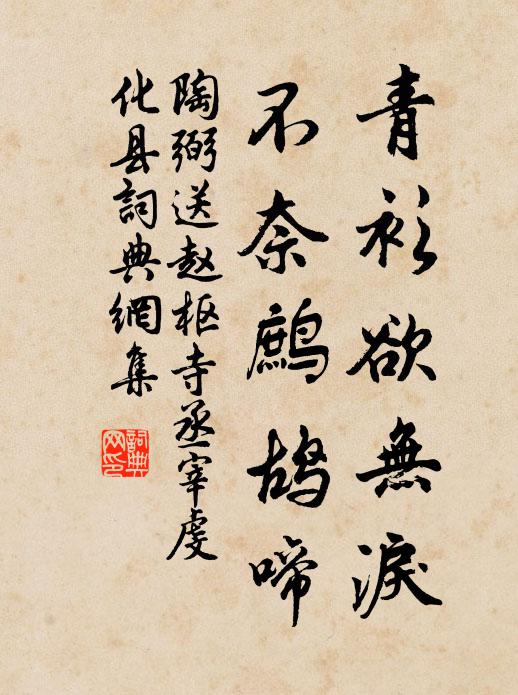 青衫欲無淚
不奈鷓鴣啼
陶弼送赵枢寺丞宰虔
化县詞典網集
詞典网印